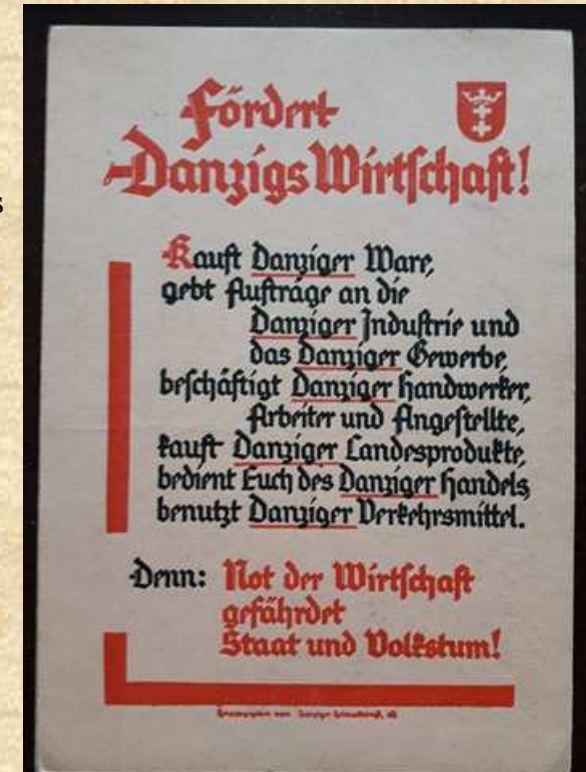 s
Fördert
Danzigs Wirtschaft!
Kauft Danziger Ware,
gebt Aufträge an die
Danziger Industrie und
das Danziger Gewerbe,
beschäftigt Danziger Handwerker,
Arbeiter und Angestellte,
kauft Danziger Landesprodukte,
bedient Euch des Danziger Handels,
benutzt Danziger Verkehrsmittel.
Denn: Not der Wirtschaft
gefährdet
Staat und Volkstum!
Herausgegeben vom Danziger Heimatdienst,